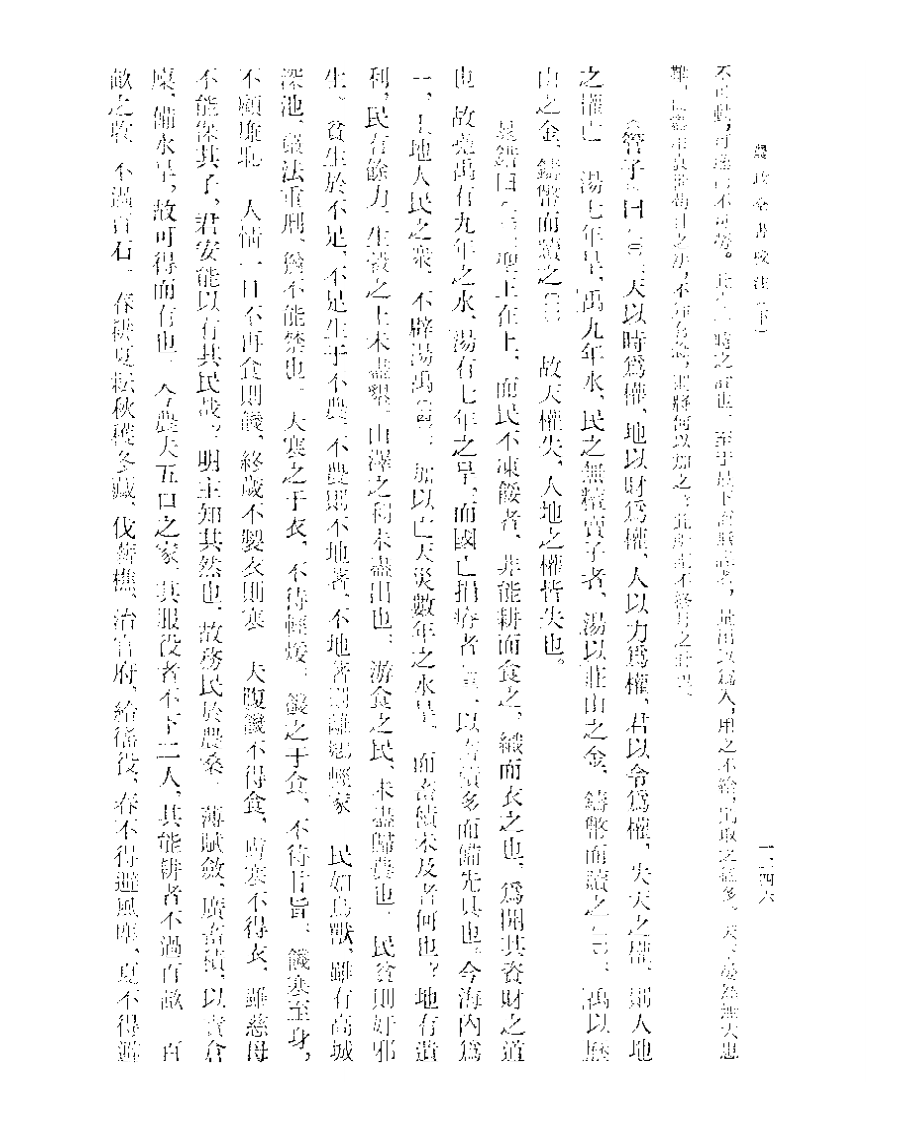 農政全書校注（下）
一二四六
不可動，可達而不可勞。此 時之計也。至于最下者無 ，量出以為入，用之不給，則取之益多。天下晏然無大患
難，而盡用衰世苟且之法，不知有急，則將何以加之。此所謂不終月之計也。
管子曰：天以時爲權，地以財爲權，人以力爲權，君以令爲權，失天之權，則人地
之權亡。湯七年旱，禹九年水，民之無糧賣子者。湯以莊山之金，鑄幣而贖之；禹以歷
山之金，鑄幣而贖之。故天權失，人地之權皆失也。
晁錯曰：聖王在上，而民不凍餒者，非能耕而食之，織而衣之也，爲開其資財之道
也。故堯禹有九年之水，湯有七年之旱，而國亡捐瘠者，以畜積多而備先具也。今海內爲
一，土地人民之衆，不辟湯禹，加以亡天災數年之水旱，而畜積未及者何也？地有遺
利，民有餘力，生穀之土未盡墾，山澤之利未盡出也，游食之民，未盡歸農也。民貧則奸邪
生。貧生於不足，不足生于不農，不農則不地著，不地著則離鄉輕家。民如鳥獸，雖有高城
深池，嚴法重刑，猶不能禁也。夫寒之于衣，不待輕煖。饑之于食，不待甘旨。饑寒至身，
不顧廉恥。人情一日不再食則饑，終歲不製衣則寒。夫腹饑不得食，膚寒不得衣，雖慈母
不能保其子，君安能以有其民哉。明主知其然也，故務民於農桑，薄賦斂，廣畜積，以實倉
廩，備水旱，故可得而有也。今農夫五口之家，其服役者不下二人，其能耕者不過百畝。百
畝之收，不過百石。春耕夏耘秋穫冬藏，伐薪樵，治官府，給徭役，春不得避風塵，夏不得避